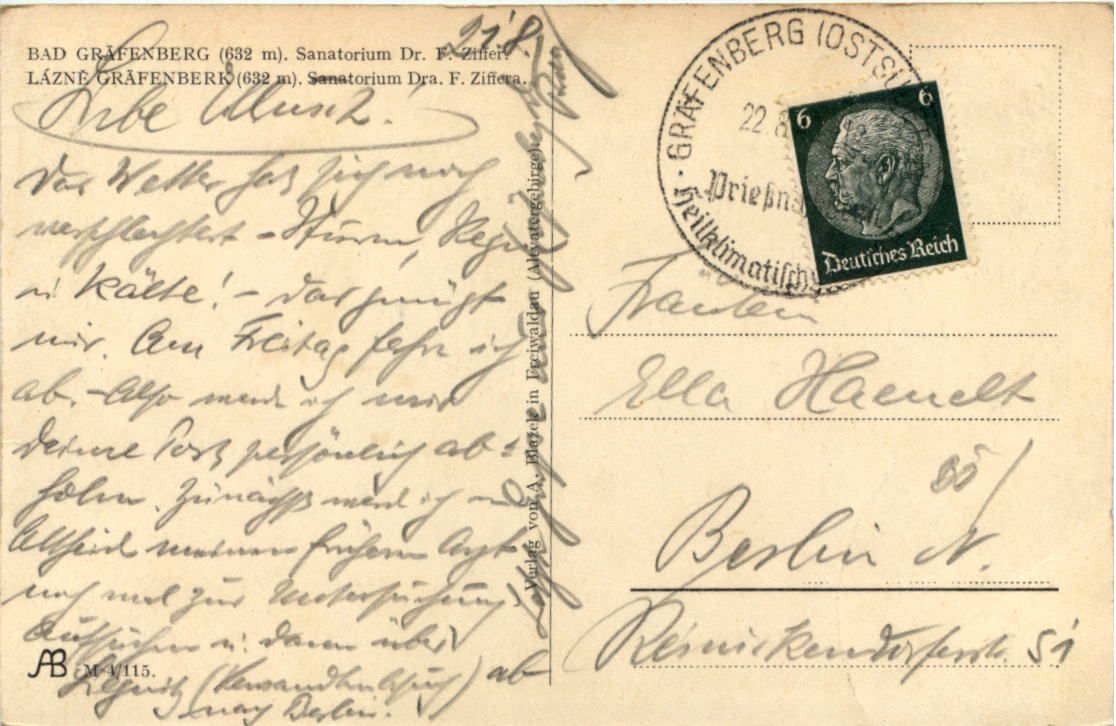 BAD GRÄFENBERG (632 m). Sanatorium Dr. F. Ziffer.
LÁZNĚ GRÄFENBERK (632 m). Sanatorium Dra. F. Ziffera.
21/8.
Liebe
Das Wetter hat sich noch
verschlechtert – Sturm, Regen
u. Kälte! – das genügt
mir. Am Freitag fahre ich
ab. – Also werde ich mir
Deine Post persönlich ab=
holen. Zunächst werde ich
Altheide meinen frühern Arzt
noch mal zur Untersuchung
aufsuchen u. dann über
Liegnitz (Verwandtenbesuch) ab
nach Berlin.
AB M 4/115.
Verlag von A. Blažek in Freiwaldau (Altvatergebirge).
GRÄFENBERG (OSTSU
22.8
Prießn
Heilklimatisch
6 6
Deutsches Reich
Fräulein
Ella Haenelt
Berlin N.
Reinickendorferstr. 51